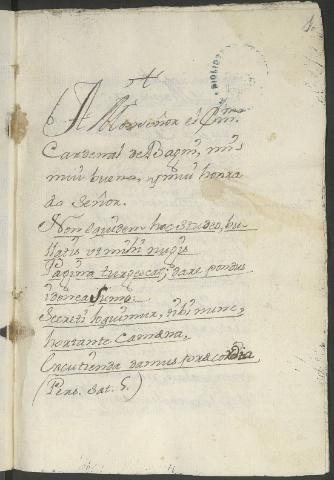 Al Monseñor el Em.mo
Cardenal de Bagni, mui
mui buena, y mui honra
do señor.
Non equidem hoc studeo, bu-
llatis ut mihi nugis
Pagina turgescat; dare pondus
idonea fumo.
Secreti loquimur, tibi nunc,
hortante Camena,
Excutienda damus præcordia
(Pers. Sat. 5.)